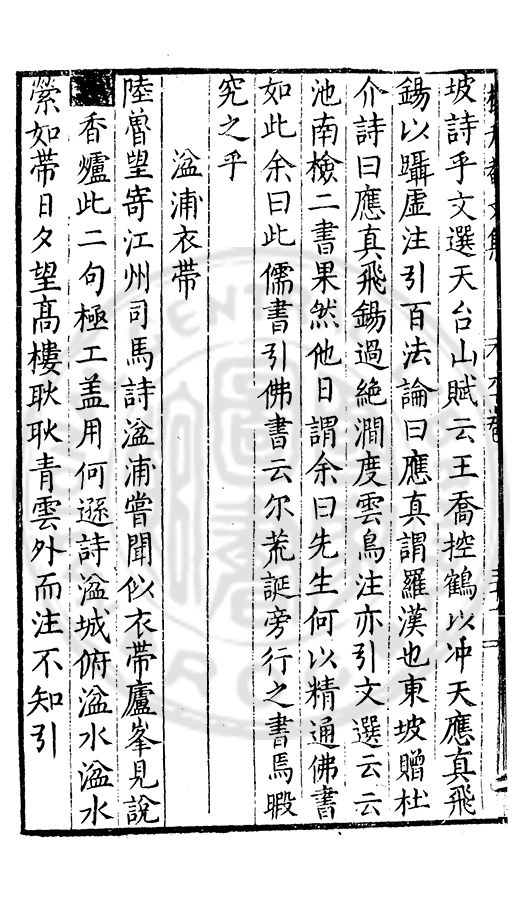 坡詩乎文選天台山賦云王喬控鶴以冲天應真飛
錫以躡虛注引百法論曰應真謂羅漢也東坡贈杜
介詩曰應真飛錫過絶澗度雲鳥注亦引文選云云
池南檢二書果然他日謂余曰先生何以精通佛書
如此余曰此儒書引佛書云尔荒誕旁行之書焉暇
究之乎
湓浦衣帶
陸魯望寄江州司馬詩湓浦嘗聞似衣帶廬峯見說
香爐此二句極工盖用何遜詩湓城俯湓水湓水
縈如帶日夕望髙樓耿耿青雲外而注不知引